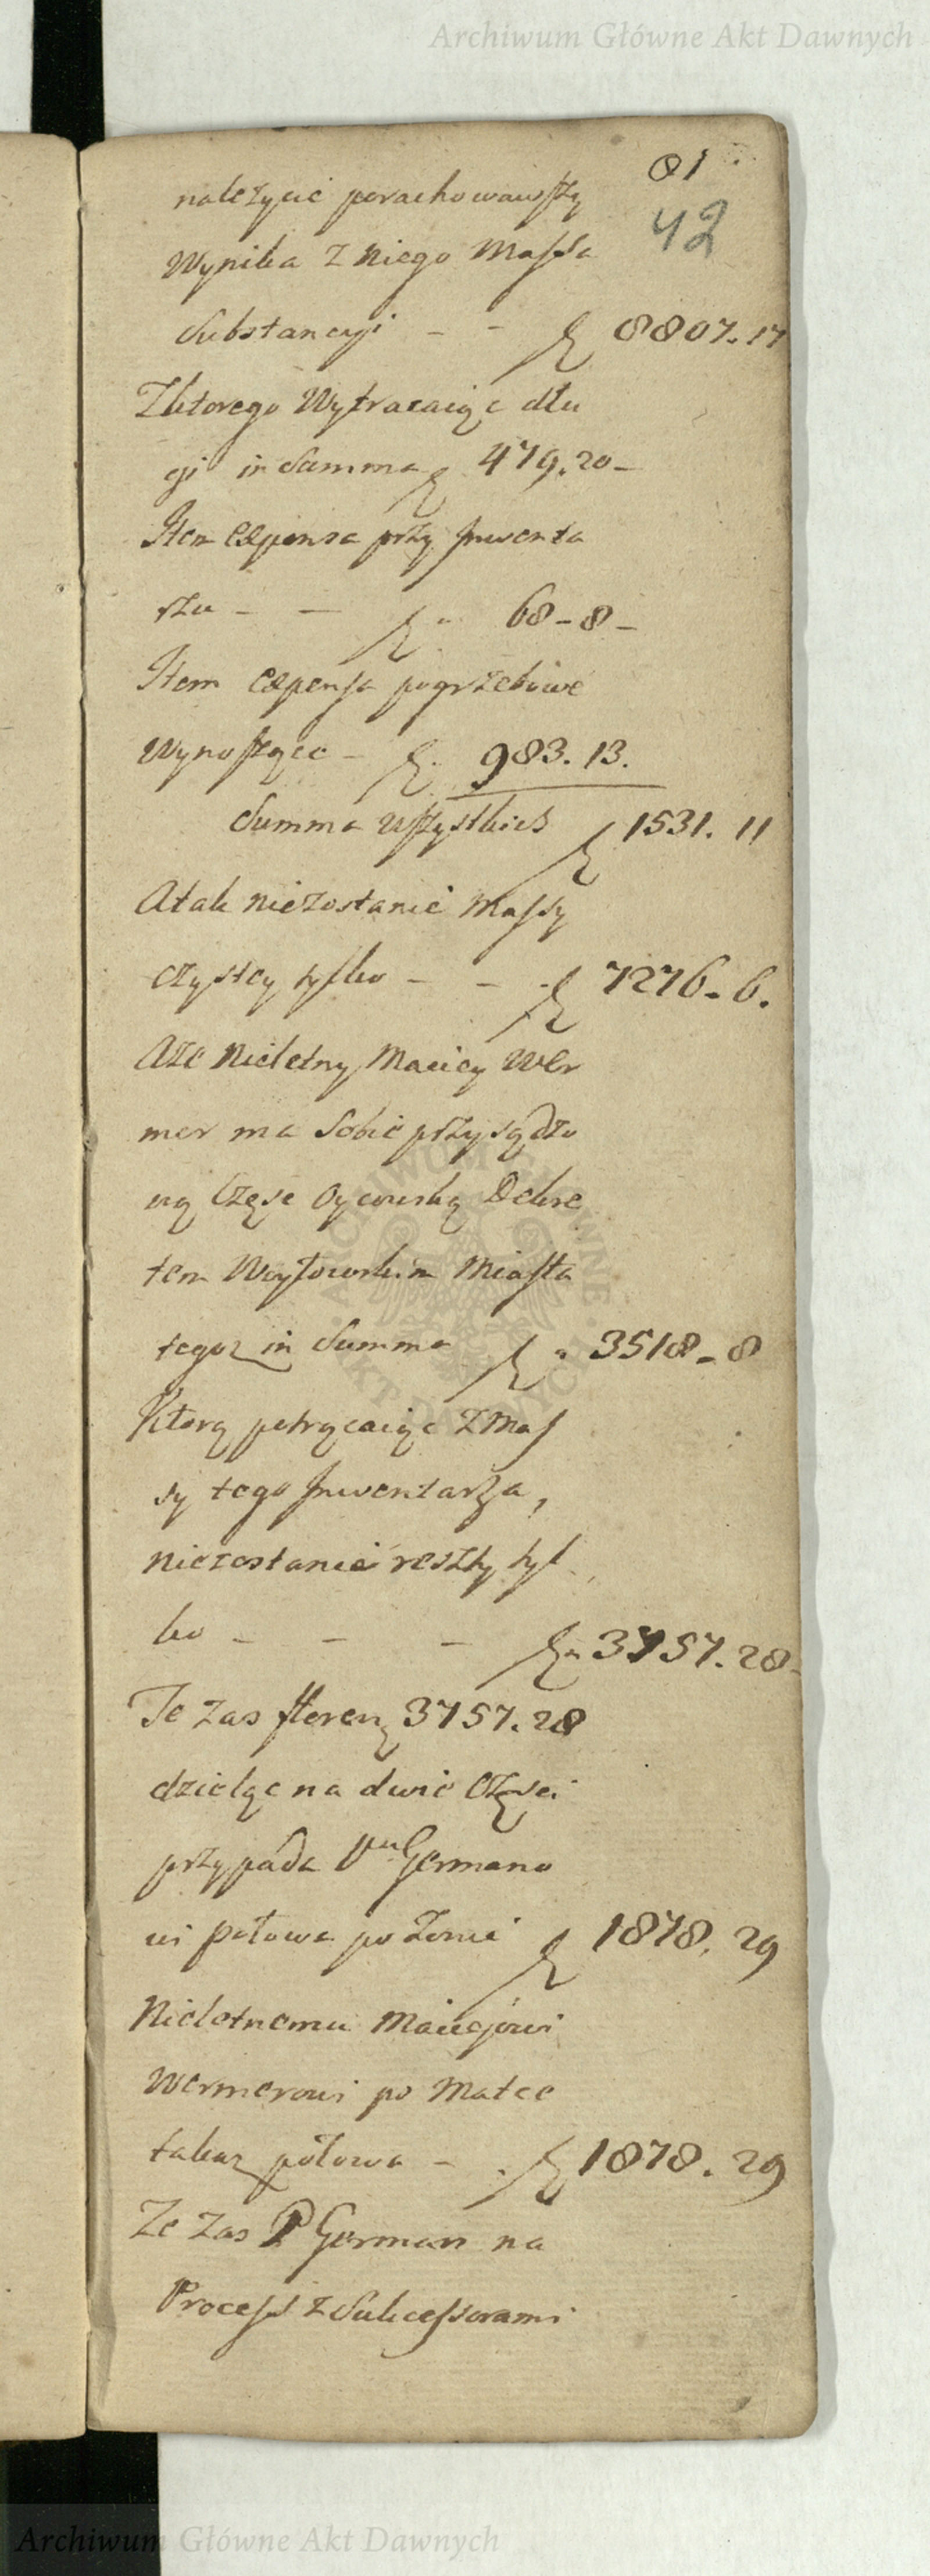 Archiwum Główne Akt Dawnych
81
42
należycie porachowawszy
Wynika z Niego Massa
Substancyi - - f 8807. 17
Zktorego Wytracaiąc dłu
gi in Summa f 479. 20 -
Item Expensa przy Inwenta
rzu - - f " 68 - 8 -
Item expensa pogrzebowe
Wynoszące - f. 983. 13.
Summa wszystkich f 1531. 11
Atak niezostanie Massy
czystey tylko - - f 7276 - 6.
Aże Nieletny Maciey Wer
mer ma Sobie przysądzo
ną Część Oycowską Dekre
tem Woytowskim Miasta
tegoż in Summa f " 3518 - 8
Którą potrącaiąc z Mas
sy tego Inwentarza,
niezostanie reszty tyl
ko - - - f " 3757. 28 -
Te zas floreny 3757. 28
dzieląc na dwie Części
przypada Germano
wi połowa po Żonie f 1878. 29
Nieletnemu Maciejowi
Wermerowi po Matce
takaż połowa - f 1878. 29
Ze zas P German na
Process z Sukcessorami
Archiwum Główne Akt Dawnych